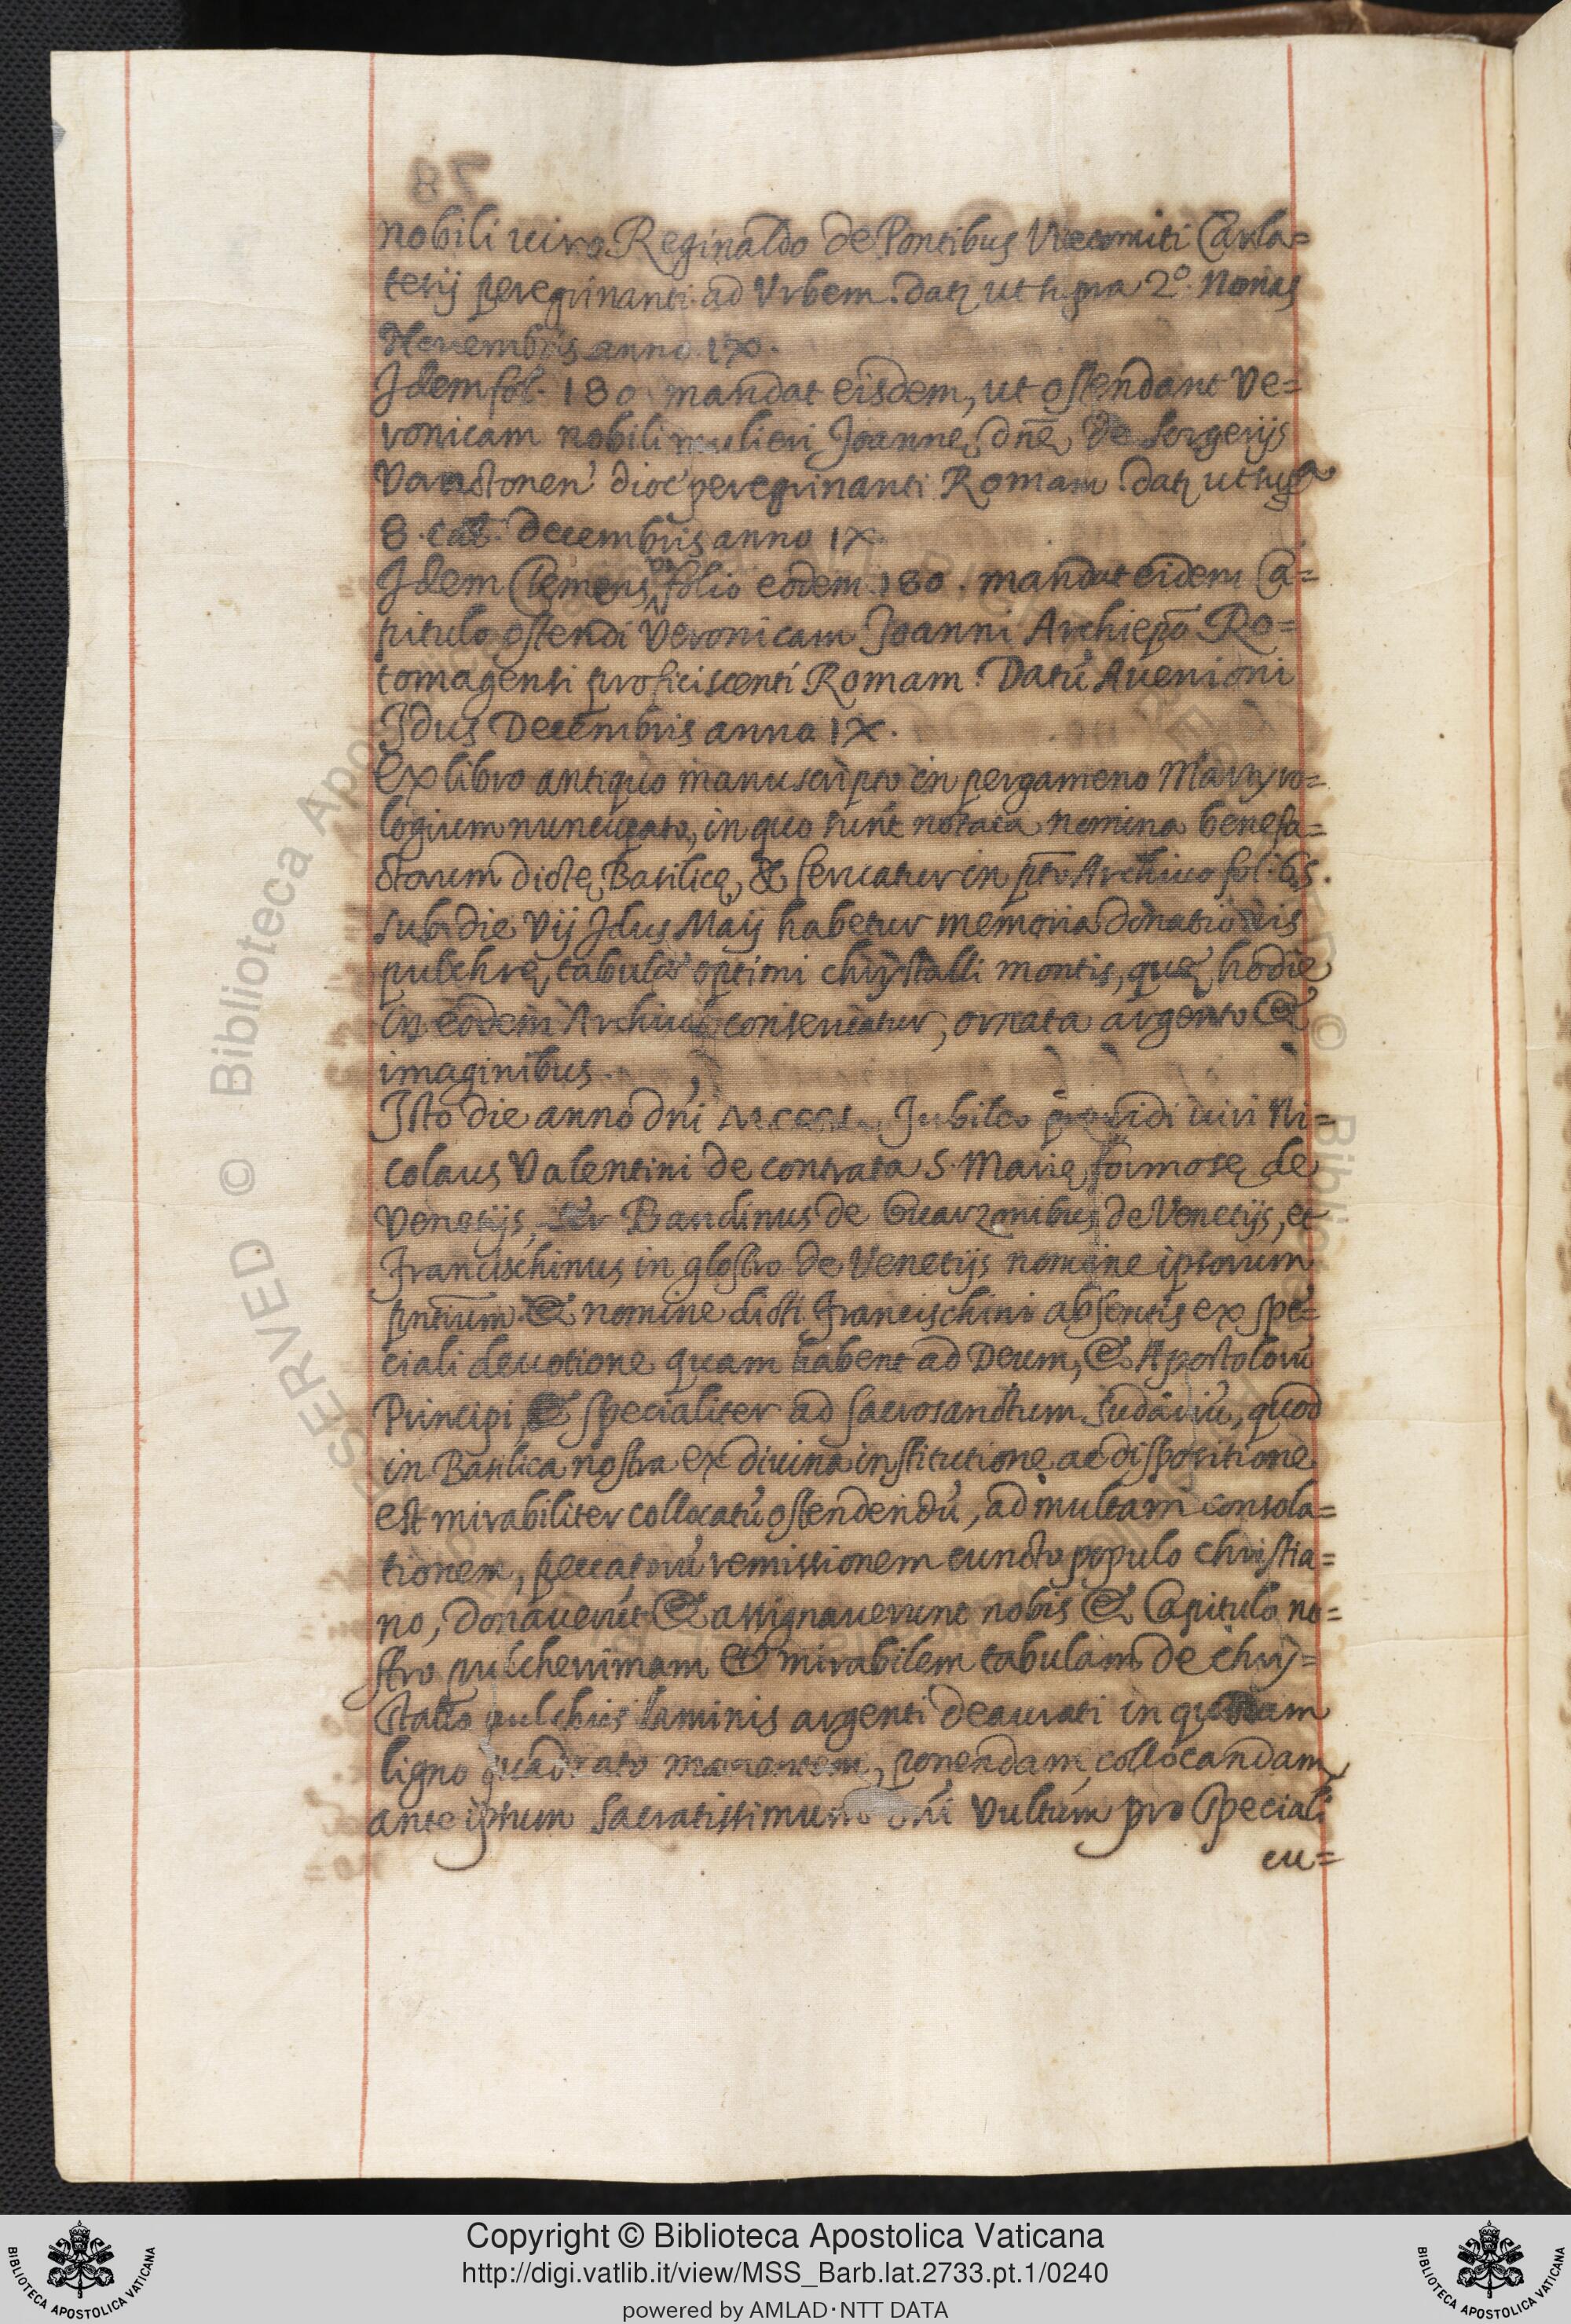 nobili uiro Reginaldo de Pontibus Vicecomiti Carla=
terij peregrinanti ad Vrbem. datz ut supra 2º. Nonas
Nouembris anno IX.
Idem fol. 180 mandat eisdem, ut ostendant Ve=
ronicam nobili mulieri Joannę dnę de
dioc̃ peregrinanti Romam. datz ut supra
8. cal. Decembris anno IX.
Idem Clemens folio eodem 180. mandat eidem Ca=
pitulo ostendi Veronicam Joanni Archiepõ Ro=
tomagensi proficiscenti Romam. Datũ Auenioni
Idus Decembris anno IX.
Ex libro antiquo manuscripto in pergameno Martyro=
logium nuncupato, in quo sunt notata nomina benefa=
ctorum dictę Basilicę, & seruatur in pto Archiuo fol. 65.
sub die Vij Idus Maij habetur memoria donationis
pulchrę tabulæ optimi chrystalli montis, quę hodie
in eodem Archiuo conseruatur, ornata argento &
imaginibus.
Isto die anno dñi Jubileo prouidi uiri Ni=
colaus Valentini de contrata S. Marię formosę de
Venetijs, ser Bandinus de Guarzonibus de Venetijs, et
Francischinus in glostro de Venetijs nomine ipsorum
pñtium & nomine dicti Francischini absentis ex spe=
ciali deuotione quam habent ad Deum, & Apostolorũ
Principi, & specialiter ad sacrosanctum Sudariũ, quod
in Basilica nostra ex diuina institutione ac dispositione
est mirabiliter collocatũ ostendendũ, ad multam consola=
tionem, peccatorũ remissionem cuncto populo christia=
no, donauerũt & assignauerunt nobis & Capitulo no=
stro pulcherrimam & mirabilem tabulam de chry=
stallo pulchris laminis argenti deaurati in quodam
ligno quadrato manentem, ponendam, collocandam
ante ipsum sacratissimum dñi Vultum pro speciali
cu=
78
Copyright © Biblioteca Apostolica Vaticana
http://digi.vatlib.it/view/MSS_Barb.lat.2733.pt.1/0240
powered by AMLAD·NTT DATA
BIBLIOTECA APOSTOLICA VATICANA
BIBLIOTECA APOSTOLICA VATICANA